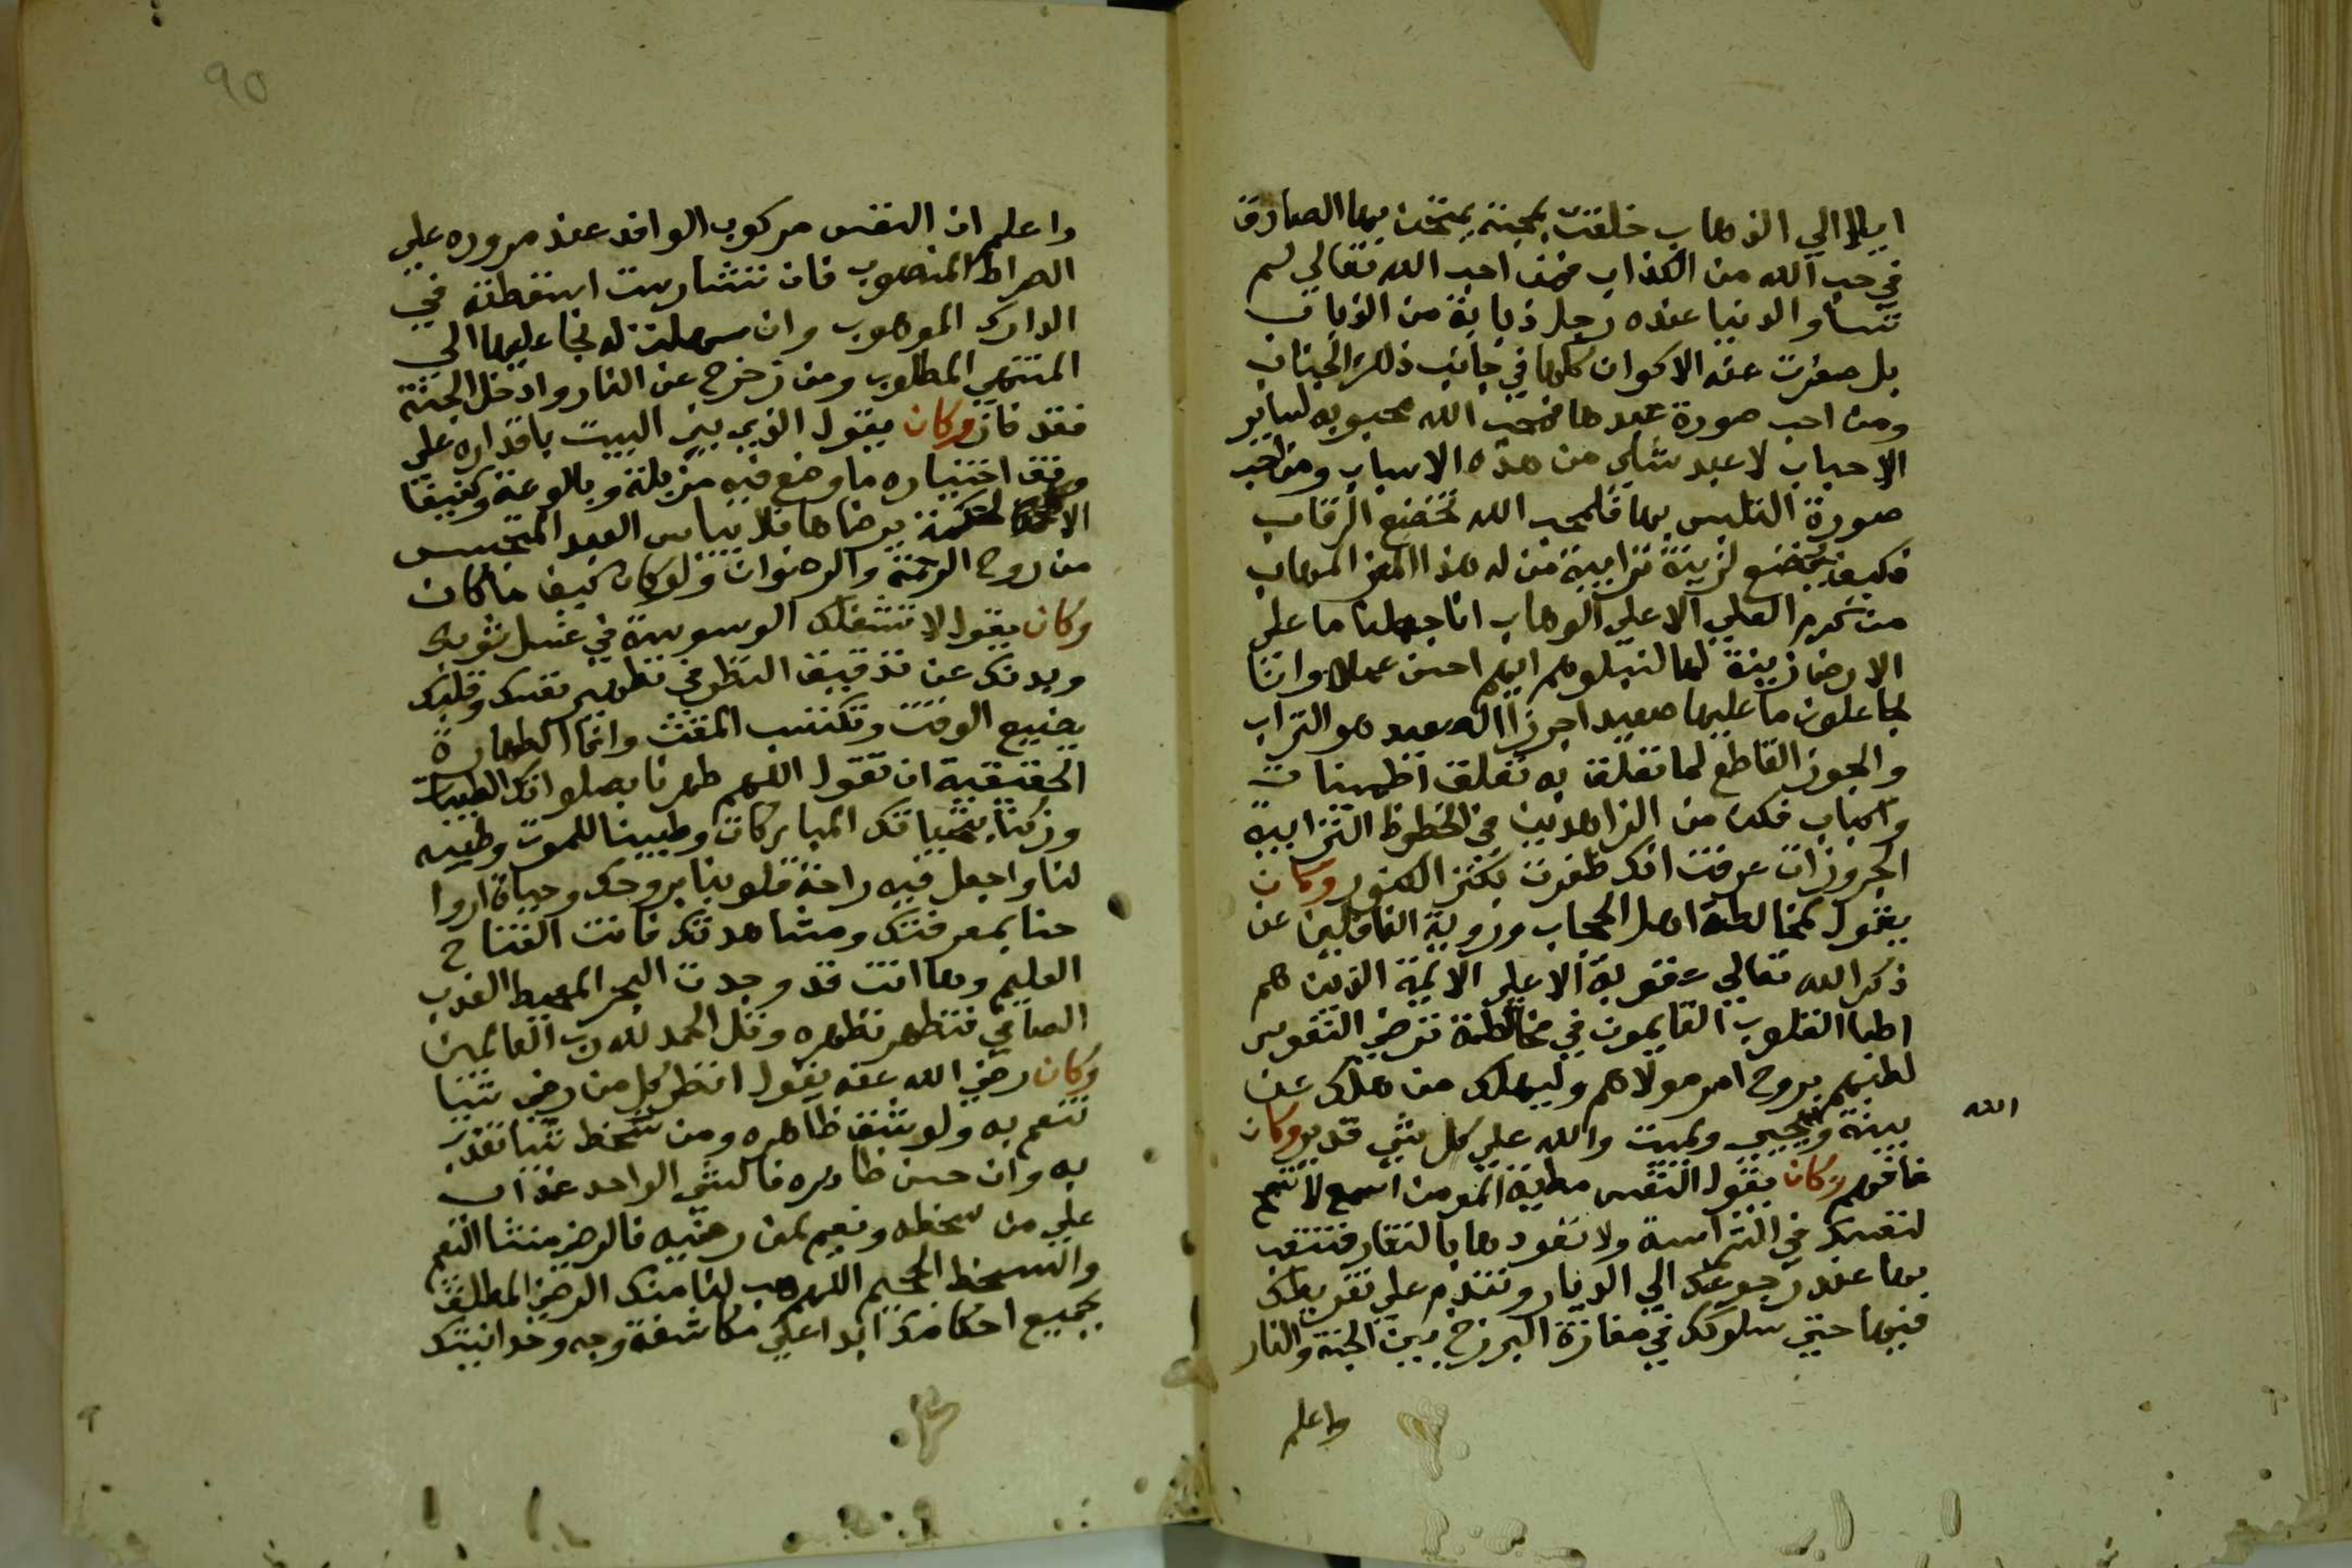 ايلاالي الذهاب خلقت بمحبة يمتحن بها الصادق
في حب الله من الكذاب فمن احب الله تعالي لم
تسا و الدنيا عنده رجل ذبابة من الذباب
بل صغرت عنه الاكوان كلها في جانب ذلك الجناب
ومن احب صورة عبدها فمحب الله محبوبه لساير
الاحباب لا عبد شاي من هذه الاسباب ومن احب
صورة التلبس بها فلمحب الله تخضع الرقاب
فكيف يخضع لزينة ترابية من له هذا العز المهاب
من كرم العلي الاعلي الوهاب انا جعلنا ما علي
الارض زينة لها لنبلوهم ايهم احسن عملا وانا
لجاعلون ما عليها صعيدا جرزا الصعيد هو التراب
والجرز القاطع لما تعلق به تعلق اطمينان
واسباب فكن من الزاهدين في الحظوظ الترابية
الجروزات عرفت انك ظفرت بكنز الكنوز وكان
يقول مخالطة اهل الحجاب ورؤية الغافلين عن
ذكر الله تعالي عقوبة الا علي الايمة الذين هم
اطبا القلوب القايمون في مخالطة مرضي النفوس
لطبهم بروح امر مولاهم وليهلك من هلك عن
بينة ويحيي ويميت والله علي كل شي قدير وكان
الله
فافهم وكان يقول النفس مطية المومن اسمع لا تتم
لنفسك في الشراسة ولا تعودها بالنفار فتتعب
بها عند رجوعك الي الديار وتندم علي تفريطك
فيها حتي سلوكك في مفازة البرزخ بين الجنة والنار
واعلم
90
واعلم ان النفس مركوب الوافد عند مروره علي
الصراط المنصوب فان تشارست اسقطته في
الدارك الموهوب وان سهلت له نجا عليها الي
المنتهي المطلوب ومن زحزح عن النار وادخل الجنة
فقد فاز وكان يقول الذي بني البيت باقداره علي
وفق اختياره ما وضع فيه مزبلة وبالوعة وكنيفا
الا لحكمة يرضاها فلا يياس العبد المتجسس
من روح الرحمة والرضوان ولو كان كيف ما كان
وكان يقول لا تشغلك الوسوسة في غسل ثوبك
وبدنك عن تدقيق النظر في تطهير نفسك وقلبك
يضيع الوقت وتكتسب المقت وانما الطهارة
الحقيقية ان تقول اللهم طهرنا بصلواتك الطيبات
وزكنا بتحياتك المباركات وطيبنا للموت وطيبه
لنا واجعل فيه راحة قلوبنا بروحك وحياة اروا
حنا بمعرفتك ومشاهدتك فانت الفتاح
العليم وها انت قد وجدت البحر المحيط العذب
الصافي فتطهر تطهره وقل الحمد لله رب العالمين
وكان رضي الله عنه يقول انظر كل من رضي شيا
تنعم به ولو شق ظاهره ومن سخط شيا تعذب
به وان حسن ظاهره فالشي الواحد عذاب
علي من سخطه ونعيم لمن رضيه فالرضي منشا النعم
والسخط الجحيم اللهم هب لنا منك الرضي المطلق
بجميع احكامك ابدا علي مكاشفة وجه وحدانيتك